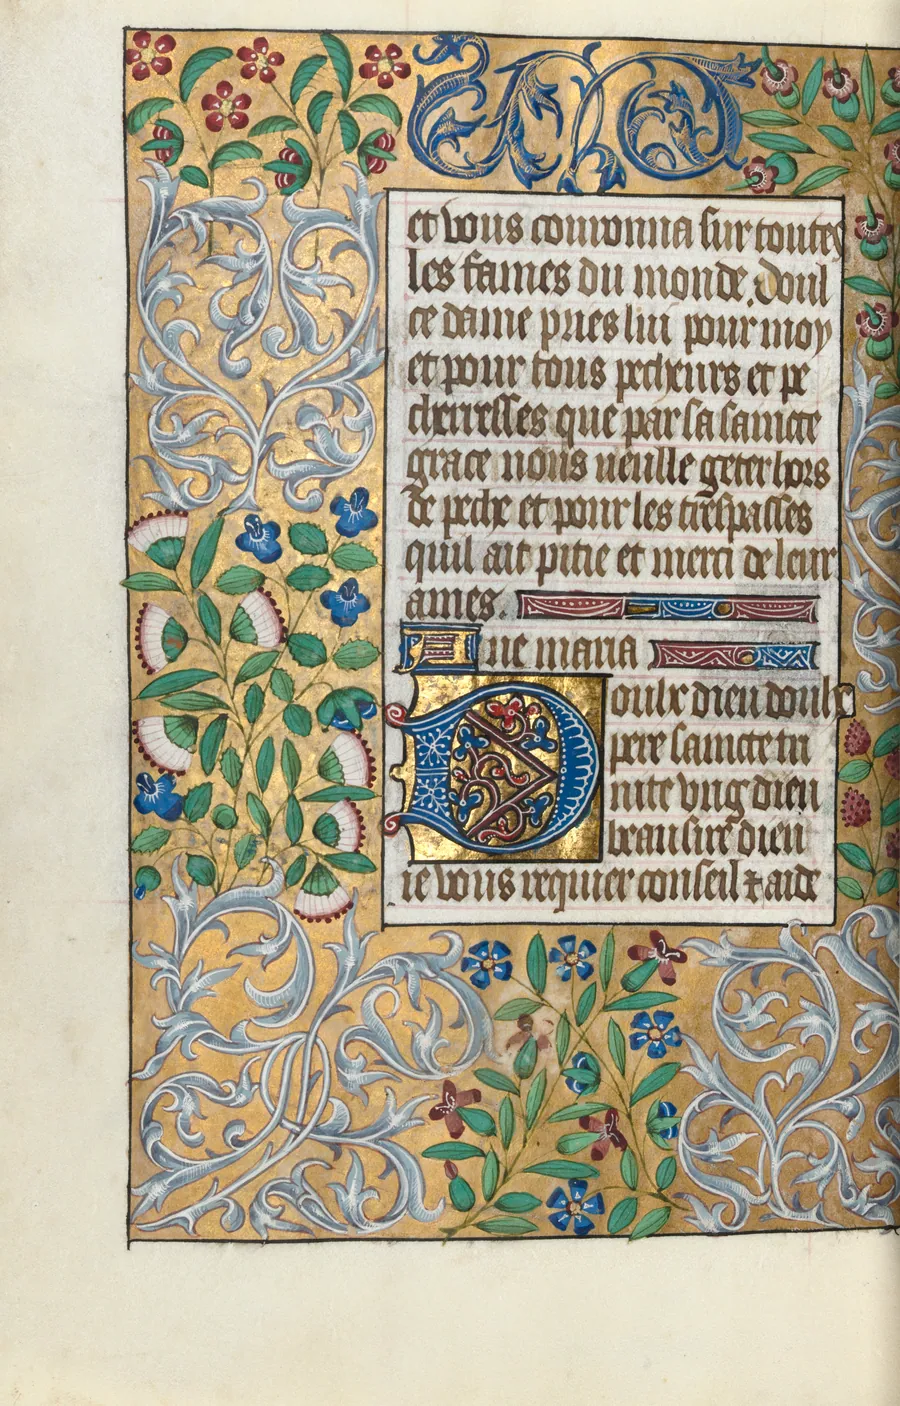 et vous couronna sur toutes
les fames du monde. doul
ce dame pries lui pour moy
et pour tous pecheurs et pe
cherresses que par sa saincte
grace nous ueulle geter hors
de peche et pour les trespasses
quil ait pitie et merci de leur
ames.
Aue maria
Doulx dieu doulx
pere saincte tri
nite vng dieu
biau sire dieu
ie vous requier conseil et aide